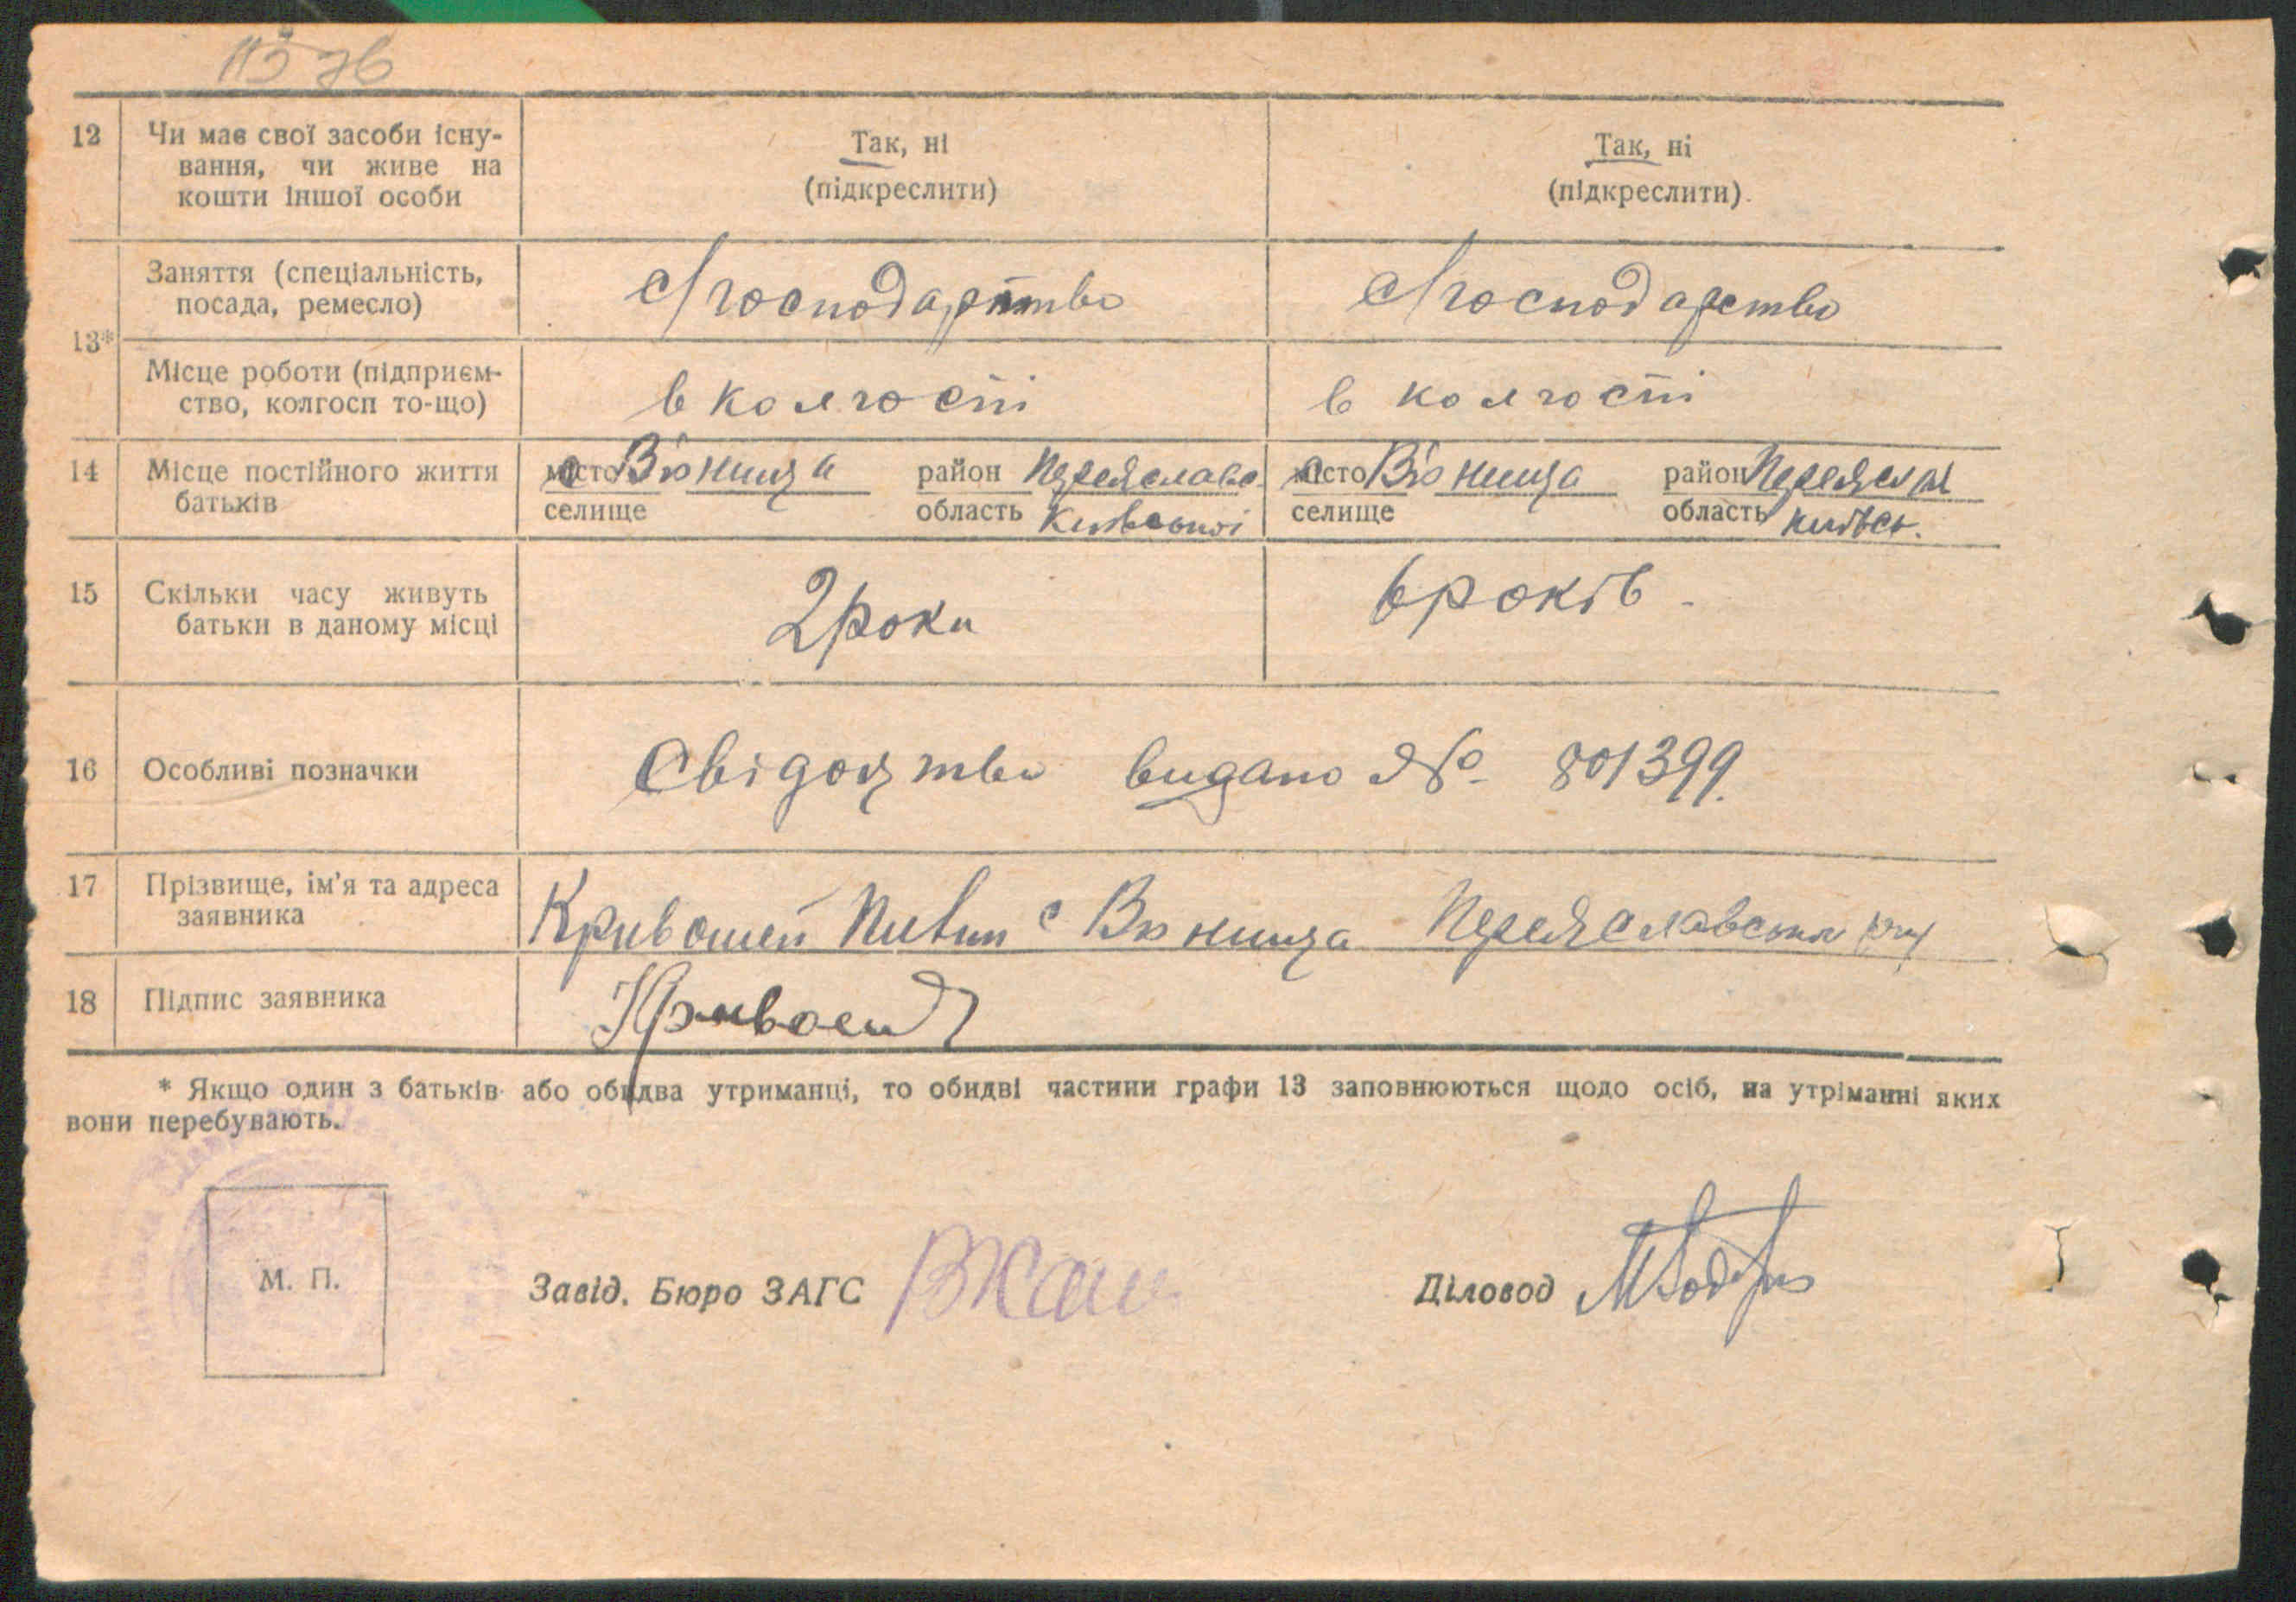 1576
12 Чи має свої засоби існу- Так, ні Так, ні
вання, чи живе на (підкреслити) (підкреслити)
кошти іншої особи
13* Заняття (спеціальність, с/господарство с/господарство
посада, ремесло)
Місце роботи (підприєм- в колгоспі в колгоспі
ство, колгосп то-що)
14 Місце постійного життя місто В'юнища район Переяславс місто В'юнища район Переясл
батьків селище область Київської селище область Київсь.
15 Скільки часу живуть 2 роки 6 років
батьки в даному місці
16 Особливі позначки Свідоцтво видано № 801399.
17 Прізвище, ім'я та адреса Кривошей с В'юнища Переяславськ
заявника
18 Підпис заявника
* Якщо один з батьків або обидва утриманці, то обидві частини графи 13 заповнюються щодо осіб, на утріманні яких
вони перебувають.
М. П. Завід. Бюро ЗАГС Діловод